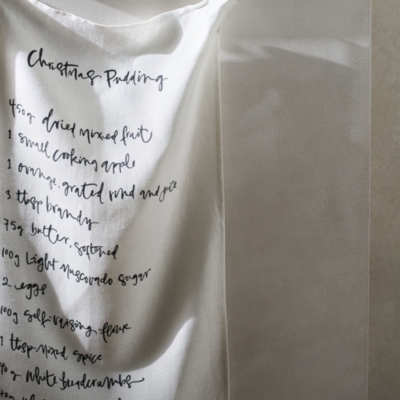 Christmas Pudding
450g dried mixed fruit
1 small cooking apple
1 orange, grated rind and juice
3 tbsp brandy
75g butter, softened
100g Light Muscovado sugar
2 eggs
100g self-raising flour
1 tbsp mixed spice
40g white breadcrumbs